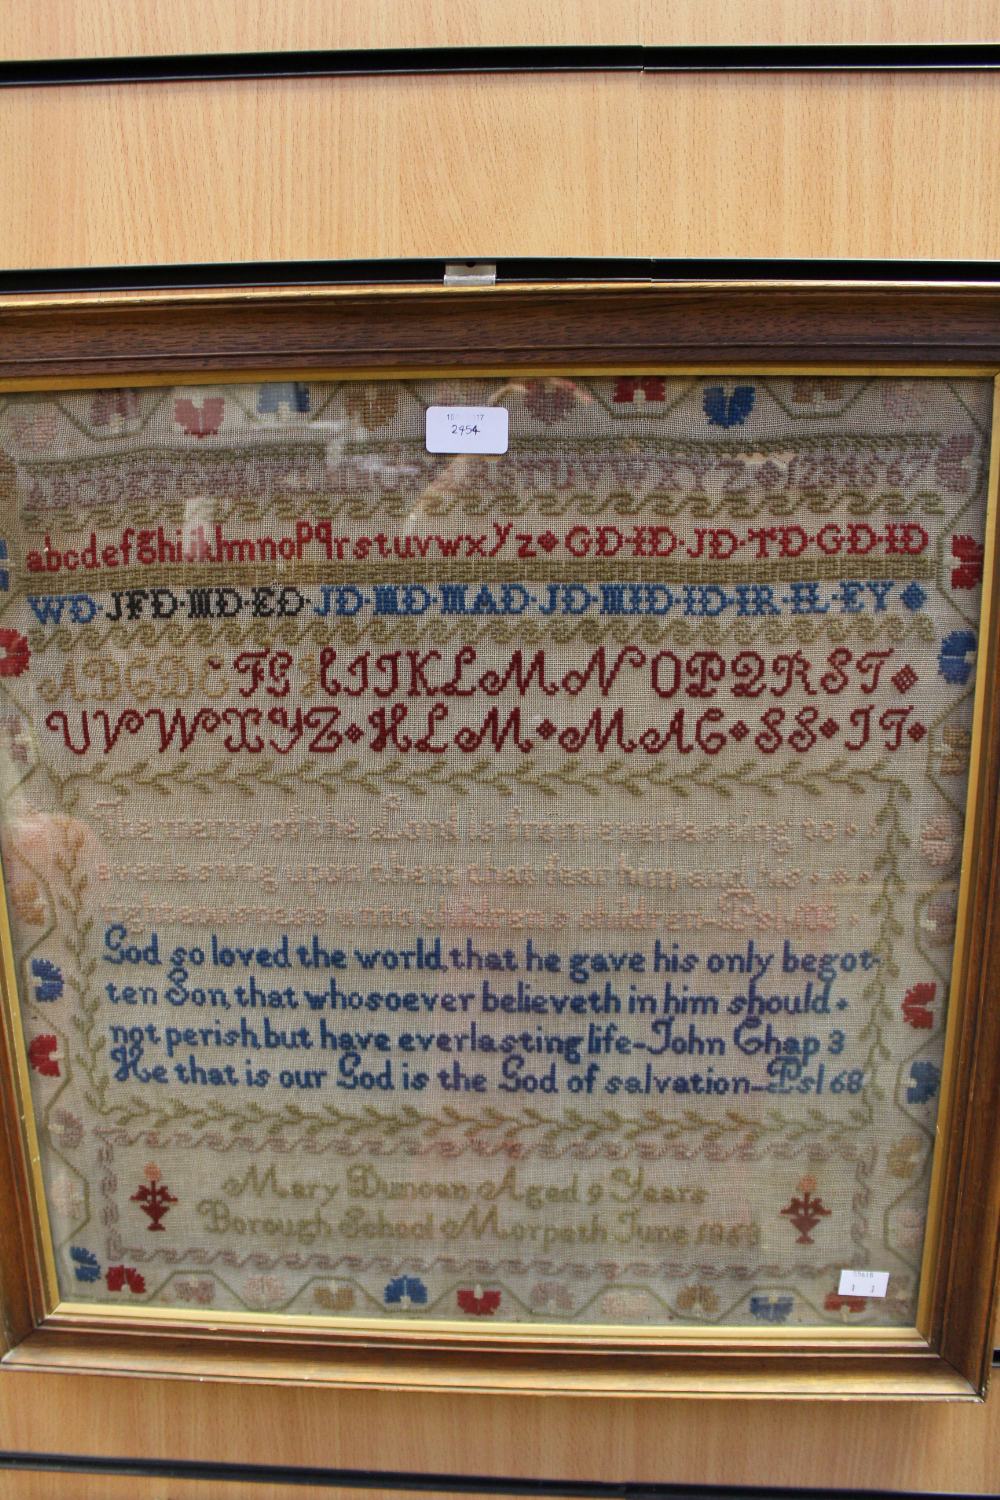 2954
ABCDEFGHIJKLMNOPQRSTUVWXYZ 1234567
abcdefghijklmnopqrstuvwxyz GD·ID·JD·TD·GD·ID
WD·JFD·MD·ED·JD·MD·MAD·JD·MHD·ID·IR·IL·EY
ABCDE FG HIJKLMNOPQRST
UVWXYZ HLM MAC SS IT
The mercy of the Lord is from everlasting to
everlasting upon them that fear him and his
righteousness unto children's children-Psl 103
God so loved the world, that he gave his only begot-
ten Son, that whosoever believeth in him should
not perish, but have everlasting life-John Chap 3
He that is our God is the God of salvation-Psl 68
Mary Duncan Aged 9 Years
Borough School Morpeth June